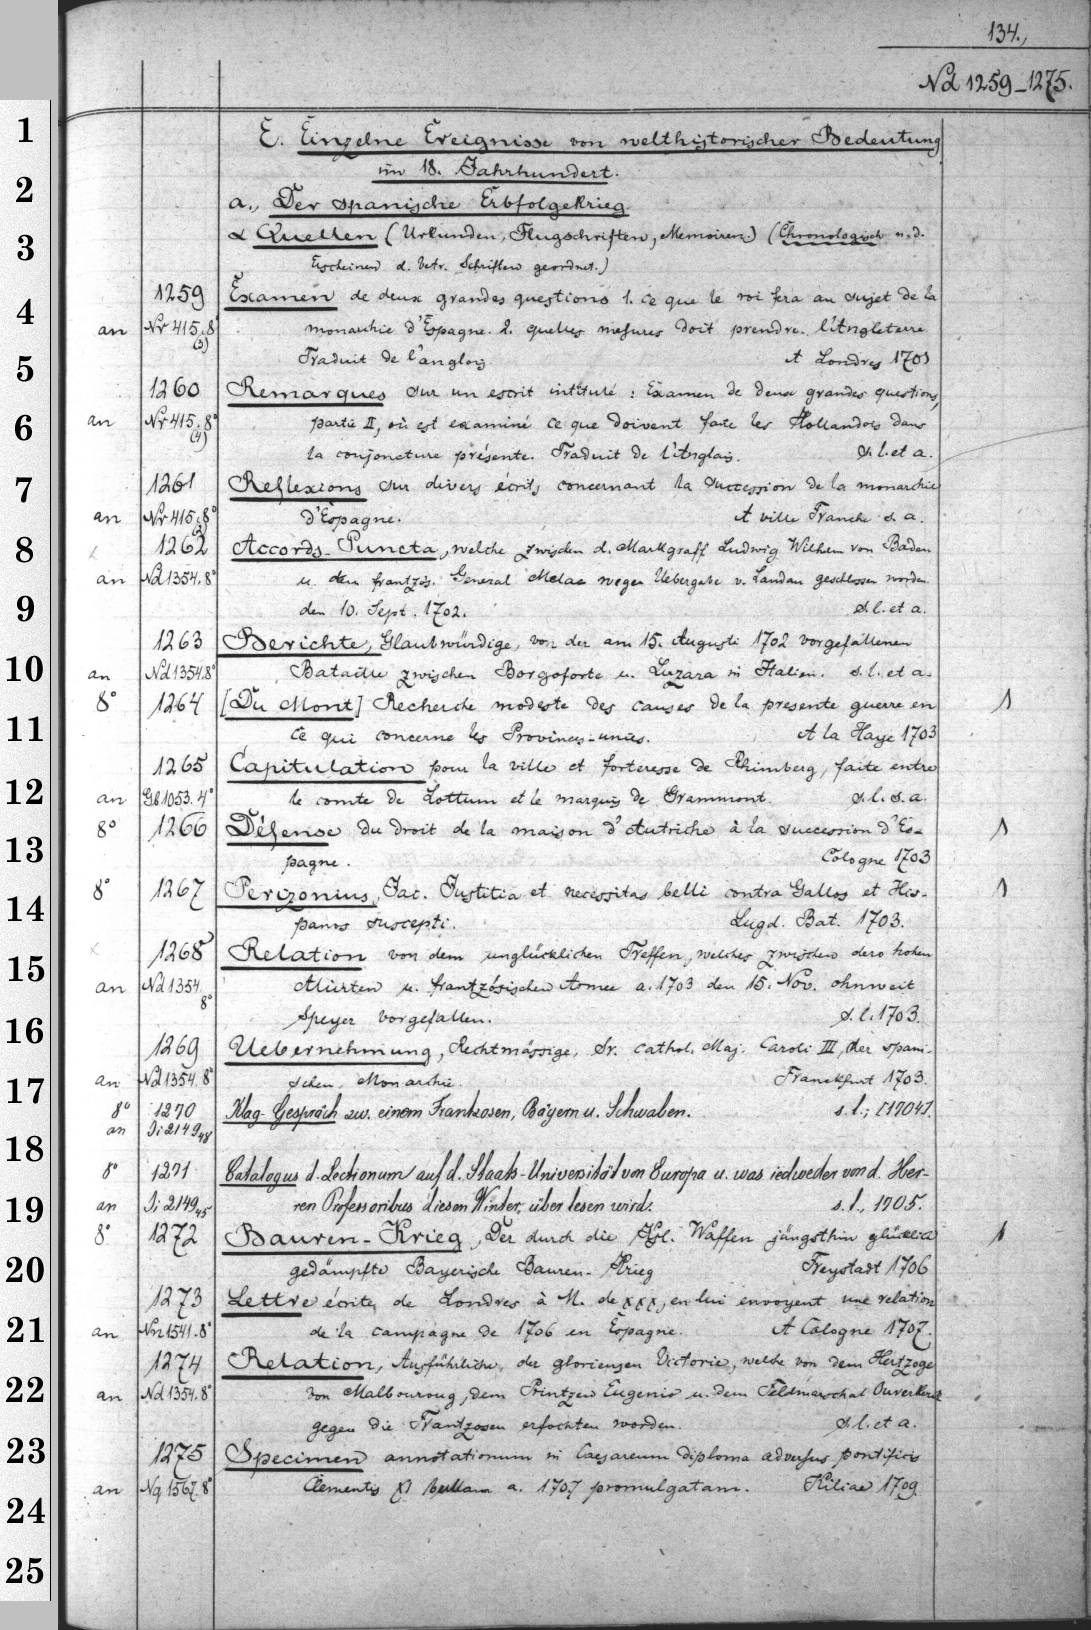 134.
Nd 1259-1275.
E. Einzelne Ereignisse von welthistorischer Bedeutung
im 18. Jahrhundert.
a., Der spanische Erbfolgekrieg
α Quellen (Urkunden, Flugschriften, Memoiren) (Chronologisch n. d.
Erscheinen d. betr. Schriften geordnet.)
1259 Examen de deux grandes questions 1. ce que le roi fera au sujet de la
an Nr 415.8° monarchie d'Espagne. 2. quelles mesures doit prendre l'Angleterre
(3) Traduit de l'anglois A Londres 1701
1260 Remarques sur un escrit intitulé: Examen de deux grandes questions,
an Nr 415.8° partie II, où est examiné ce que doivent faite les Hollandois dans
(4) la conjoncture présente. Traduit de l'Anglais. s. l. et a.
1261 Reflexions sur divers écrits concernant la succession de la monarchie
an Nr 415.8° d'Espagne. A ville Franche s. a.
1262 Accords-Puncta, welche zwischen d. Markgraff Ludwig Wilhem von Baden
an Nd 1354.8° u. dem frantzös. General Melac wegen Uebergabe v. Landau geschlossen worden
den 10. Sept. 1702. s. l. et a.
1263 Berichte, Glaubwürdige, von der am 15. Augusti 1702 vorgefallenen
an Nd 1354.8° Bataille zwischen Borgoforte u. Luzara in Italien. s. l. et a.
8° 1264 [Du Mont] Recherche modeste des causes de la presente guerre en 1
ce qui concerne les Provinces-unies. A la Haye 1703
1265 Capitulation pour la ville et forteresse de Rhimberg, faite entre
an Gb 1053.4° le comte de Lottum et le marquis de Grammont. s. l. s. a.
8° 1266 Défense du droit de la maison d'Autriche à la succession d'Es- 1
pagne. Cologne 1703
8° 1267 Perizonius, Jac. Justitia et necessitas belli contra Gallos et His- 1
panos suscepti. Lugd. Bat. 1703.
1268 Relation von dem unglücklichen Treffen, welches zwischen dero hohen
an Nd 1354. 8° Aliirten u. frantzösischen Armee a. 1703 den 15. Nov. ohnweit
Speyer vorgefallen. s. l. 1703.
1269 Uebernehmung, Rechtmässige, Sr. cathol. Maj. Caroli III, der spani-
an Nd 1354.8° schen Monarchie. Franckfurt 1703.
8° 1270 Klag-Gespräch zw. einem Frankosen, Bayern u. Schwaben. s. l., [1704].
an Di 2149 48
8° 1271 Catalogus d. Lectionum auf d. Staats-Universität von Europa u. was iedweder von d. Her-
an Di 2149 45 ren Professoribus diesen Winter über lesen wird. s. l., 1705.
8° 1272 Bauren-Krieg, Der durch die Ksl. Waffen jüngsthin glückl. 1
gedämpfte Bayerische Bauren-Krieg Freystadt 1706
1273 Lettre écrite de Londres à M. de xxx, en lui envoyent une relation
an Nn 1541.8° de la campagne de 1706 en Espagne. A Cologne 1707.
1274 Relation, Ausführliche, der glorieusen Victorie, welche von dem Hertzoge
an Nd 1354.8° von Malbouroug, dem Printzen Eugenio u. dem Feldmarschal Ouverkerck
gegen die Frantzosen erfochten worden. s. l. et a.
1275 Specimen annotationum in Caesareum diploma adversus pontificis
an Ng 1567.8° Clementis XI bullam a. 1707 promulgatam. Kiliae 1709.
1
2
3
4
5
6
7
8
9
10
11
12
13
14
15
16
17
18
19
20
21
22
23
24
25